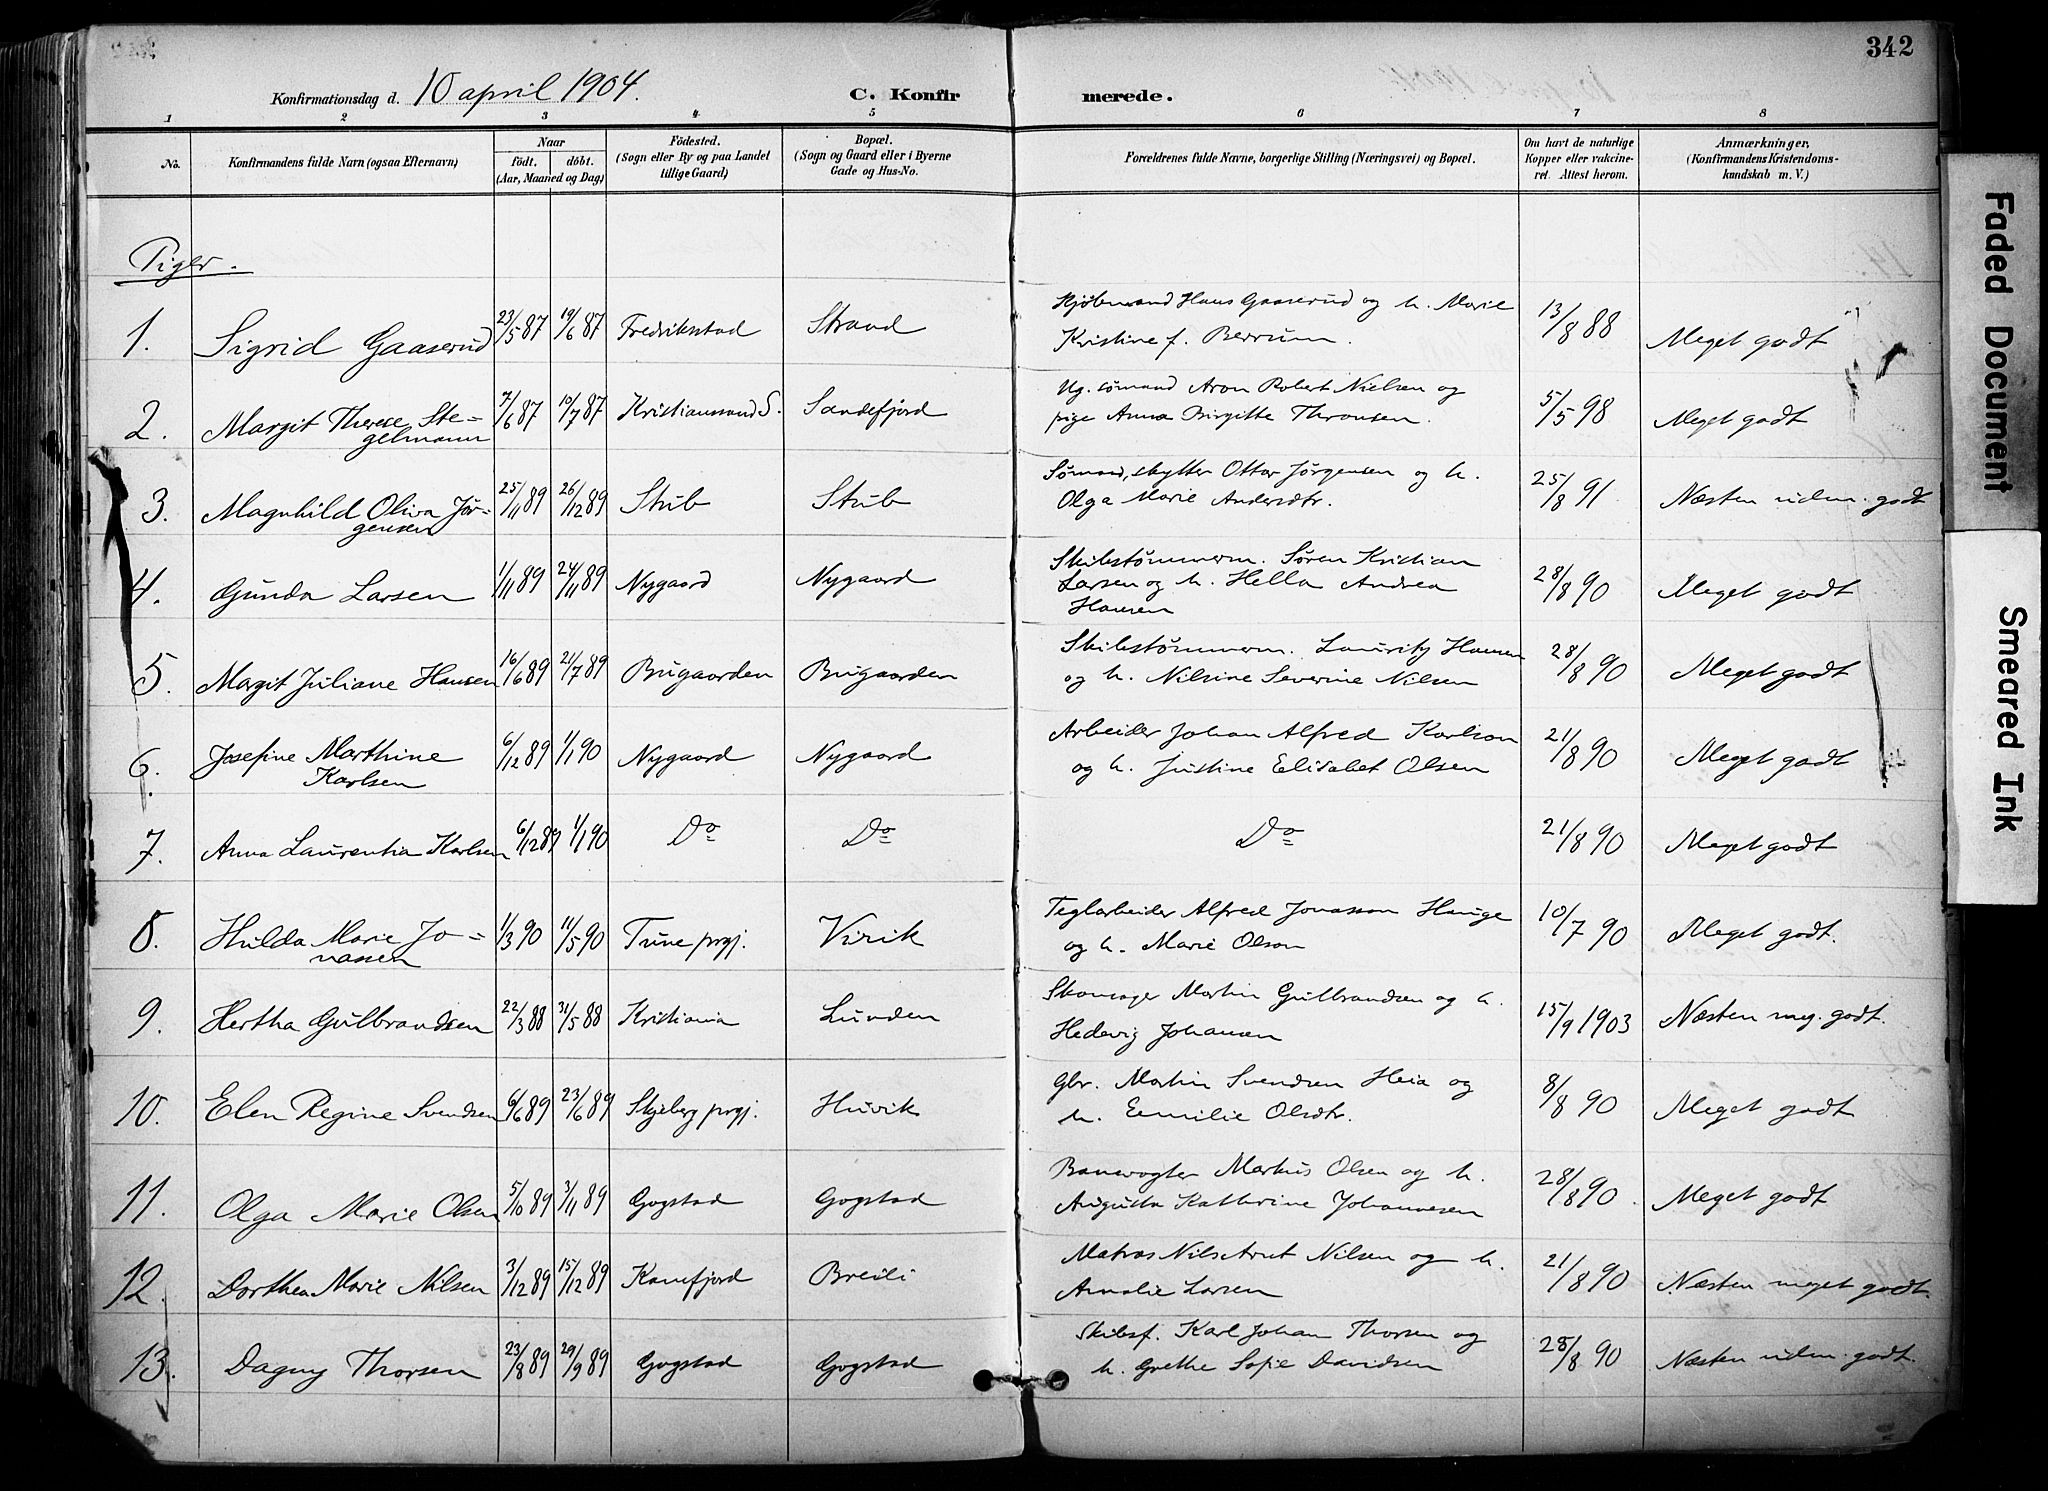 342
Konfirmationsdag d. 10 april 1904. C. Konfirmerede.
1 2 3 4 5 6 7 8
No. Konfirmandens fulde Navn (ogsaa Efternavn) Naar födt. döbt. (Aar, Maaned og Dag) Födested. (Sogn eller By og paa Landet tillige Gaard) Bopæl. (Sogn og Gaard eller i Byerne Gade og Hus-No. Forældrenes fulde Navne, borgerlige Stilling (Næringsvei) og Bopæl. Om havt de naturlige Kopper eller vakcineret. Attest herom. Anmærkninger. (Konfirmandens Kristendomskundskab m. V.)
Piger.
1. Sigrid Gaaserud 23/5 87 19/6 87 Fredriksstad Strand Kjøbmand Hans Gaaserud og h. Marie
Kristine f. Berrum. 13/8 88 Meget godt
2. Margit Therese Ste-
gelmann 7/6 87 10/7 87 Kristianssand S. Sandefjord Ug. sømand Aron Robert Nielsen og
pige Anna Birgitte Thronsen. 5/5 98 Meget godt
3. Magnhild Oliva Jør-
gensen 25/11 89 26/12 89 Stub Stub Sømand, skytter Ottar Jørgensen og h.
Olga Marie Andersdtr. 25/8 91 Næsten udm. godt
4. Gunda Larsen 1/11 89 24/11 89 Nygaard Nygaard Skibstømmerm. Søren Kristian
Larsen og h. Hella Andrea
Hansen 28/8 90 Meget godt
5. Margit Juliane Hansen 16/6 89 21/7 89 Bugaarden Bugaarden Skibstømmerm. Lauritz Hansen
og h. Nilsine Severine Nilsen 28/8 90 Meget godt
6. Josefine Marthine
Karlsen 6/12 89 1/1 90 Nygaard Nygaard Arbeider Johan Alfred Karlson
og h. Justine Elisabet Olsen 21/8 90 Meget godt
7. Anna Laurentia Karlsen 6/12 89 1/1 90 Do Do Do 21/8 90 Meget godt
8. Hulda Marie Jo-
nassen 1/3 90 11/5 90 Tune prgj. Virik Teglarbeider Alfred Jonasson Hauge
og h. Marie Olson 10/7 90 Meget godt.
9. Hertha Gulbrandsen 22/3 88 31/5 88 Kristiania Lunden Skomager Martin Gulbrandsen og h.
Hedevig Johansen 15/9 1903 Næsten meg. godt.
10. Elen Regine Svendsen 6/6 89 23/6 89 Skjeberg prgj. Huvik Gbr. Martin Svendsen Heia og
h. Emilie Olsdtr. 8/8 90 Meget godt
11. Olga Marie Olsen 5/10 89 3/11 89 Gogstad Gogstad Banevogter Markus Olsen og h.
Augusta Kathrine Johannesen 28/8 90 Meget godt
12. Dorthea Marie Nilsen 3/12 89 15/12 89 Kamfjord Breili Matros Nils Arnt Nilsen og h.
Amalie Larsen 21/8 90 Næsten meget godt.
13. Dagny Thorsen 23/8 89 29/9 89 Gogstad Gogstad Skibsf. Karl Johan Thorsen og
h. Grethe Sofie Davidsen 28/8 90 Næsten udm. godt.
Faded Document
Smeared Ink